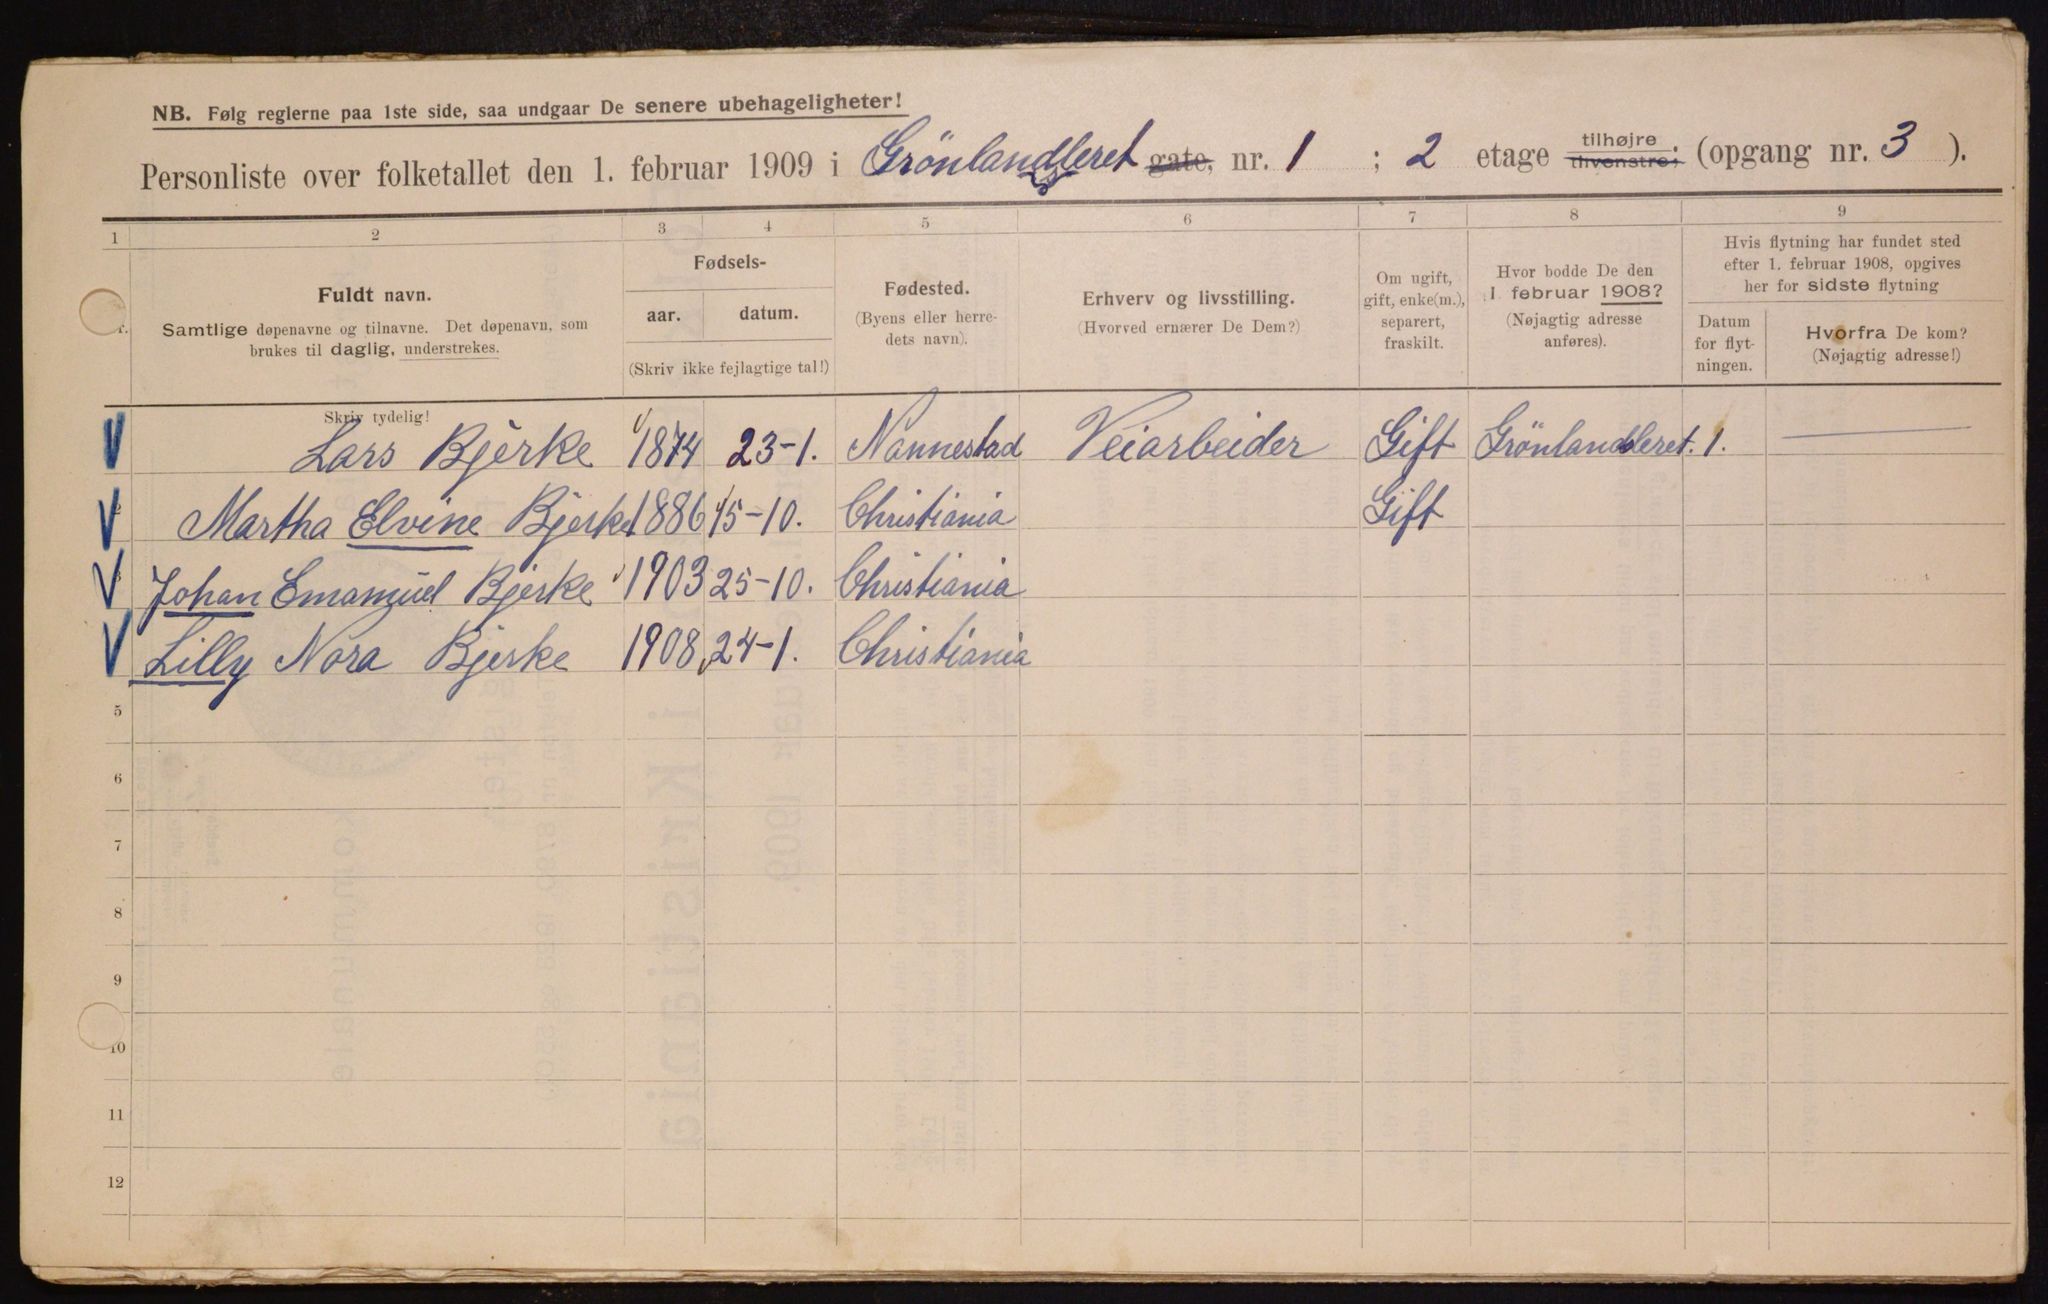 NB. Følg reglerne paa 1ste side, saa undgaar De senere ubehageligheter!
Personliste over folketallet den 1. februar 1909 i Grönlandsleret gate, nr. 1 ; 2 etage tilhøjre tilvenstre; (opgang nr. 3 ).
1 2 3 4 5 6 7 8 9
Fuldt navn.
Samtlige døpenavne og tilnavne. Det døpenavn, som
brukes til daglig, understrekes.
Skriv tydelig!
Fødsels-
aar. datum.
(Skriv ikke fejlagtige tal!)
Fødested.
(Byens eller herre-
dets navn).
Erhverv og livsstilling.
(Hvorved ernærer De Dem?)
Om ugift,
gift, enke(m.),
separert,
fraskilt.
Hvor bodde De den
1. februar 1908?
(Nøjagtig adresse
anføres).
Hvis flytning har fundet sted
efter 1. februar 1908, opgives
her for sidste flytning
Datum
for flyt-
ningen.
Hvorfra De kom?
(Nøjagtig adresse!)
Lars Bjerke 1874 23-1. Nannestad Veiarbeider Gift Grönlandsleret. 1.
Martha Elvine Bjerke 1886 15-10. Christiania Gift
Johan Emanuel Bjerke 1903 25-10. Christiania
Lilly Nora Bjerke 1908 24-1. Christiania
5
6
7
8
9
10
11
12